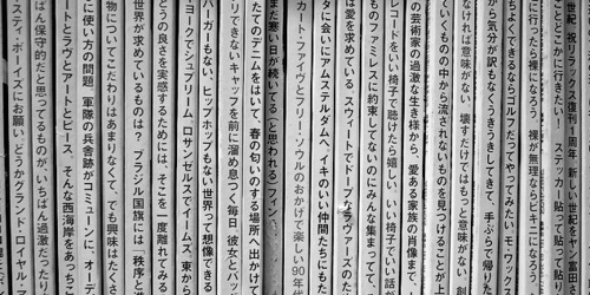 世紀 祝リラックス復刊1周年 新しい世紀をヤン富田さ
ことどこかに行きたい! ステッカー貼って貼って貼り
に行ったら裸になろう。裸が無理ならビキニになろう
ちよくできるならゴルフだってやってみたい。モ・ワックス
から気分が訳もなくうきうきしてきて、手ぶらで帰りた
なければ意味がない 壊すだけではもっと意味がない 創
ていくものの中から流されないものを見つけることが上
の芸術家の過激な生き様から、愛ある家族の肖像まで、
レコードをいい椅子で聴けたら嬉しい。いい椅子でいい話が
ものファミレスに約束してないのにみんな集まってて、
は愛を求めている。スウィートでドープなラヴァーズのた
タに会いにアムステルダムへ。イキのいい仲間たちにもた
カート・ファイヴとフリー・ソウルのおかげで楽しい90年代
まだ寒い日が続いてる(と思われる)フィン
たてのデニムをはいて、春の匂いのする場所へ出かけて
リできないキャップを前に溜め息つく毎日 彼女とバッ
バーガーもない、ヒップホップもない世界って想像できる
ヨークでシュプリーム、ロサンゼルスでイームス。東から
どうの良さを実感するためには、そこを一度離れてみる
世界が求めているものは? ブラジル国旗には「秩序と進
物についてこだわりはあまりなくて、でも興味はたくさ
に使い方の問題。軍隊の兵舎跡がコミューンに、オーデ
トとラヴとアートとピース。そんな西海岸をあっちこ
ばん保守的だと思ってるものが、いちばん過激だったりま
スティ・ボーイズにお願い。どうかグランド・ロイヤル・マ